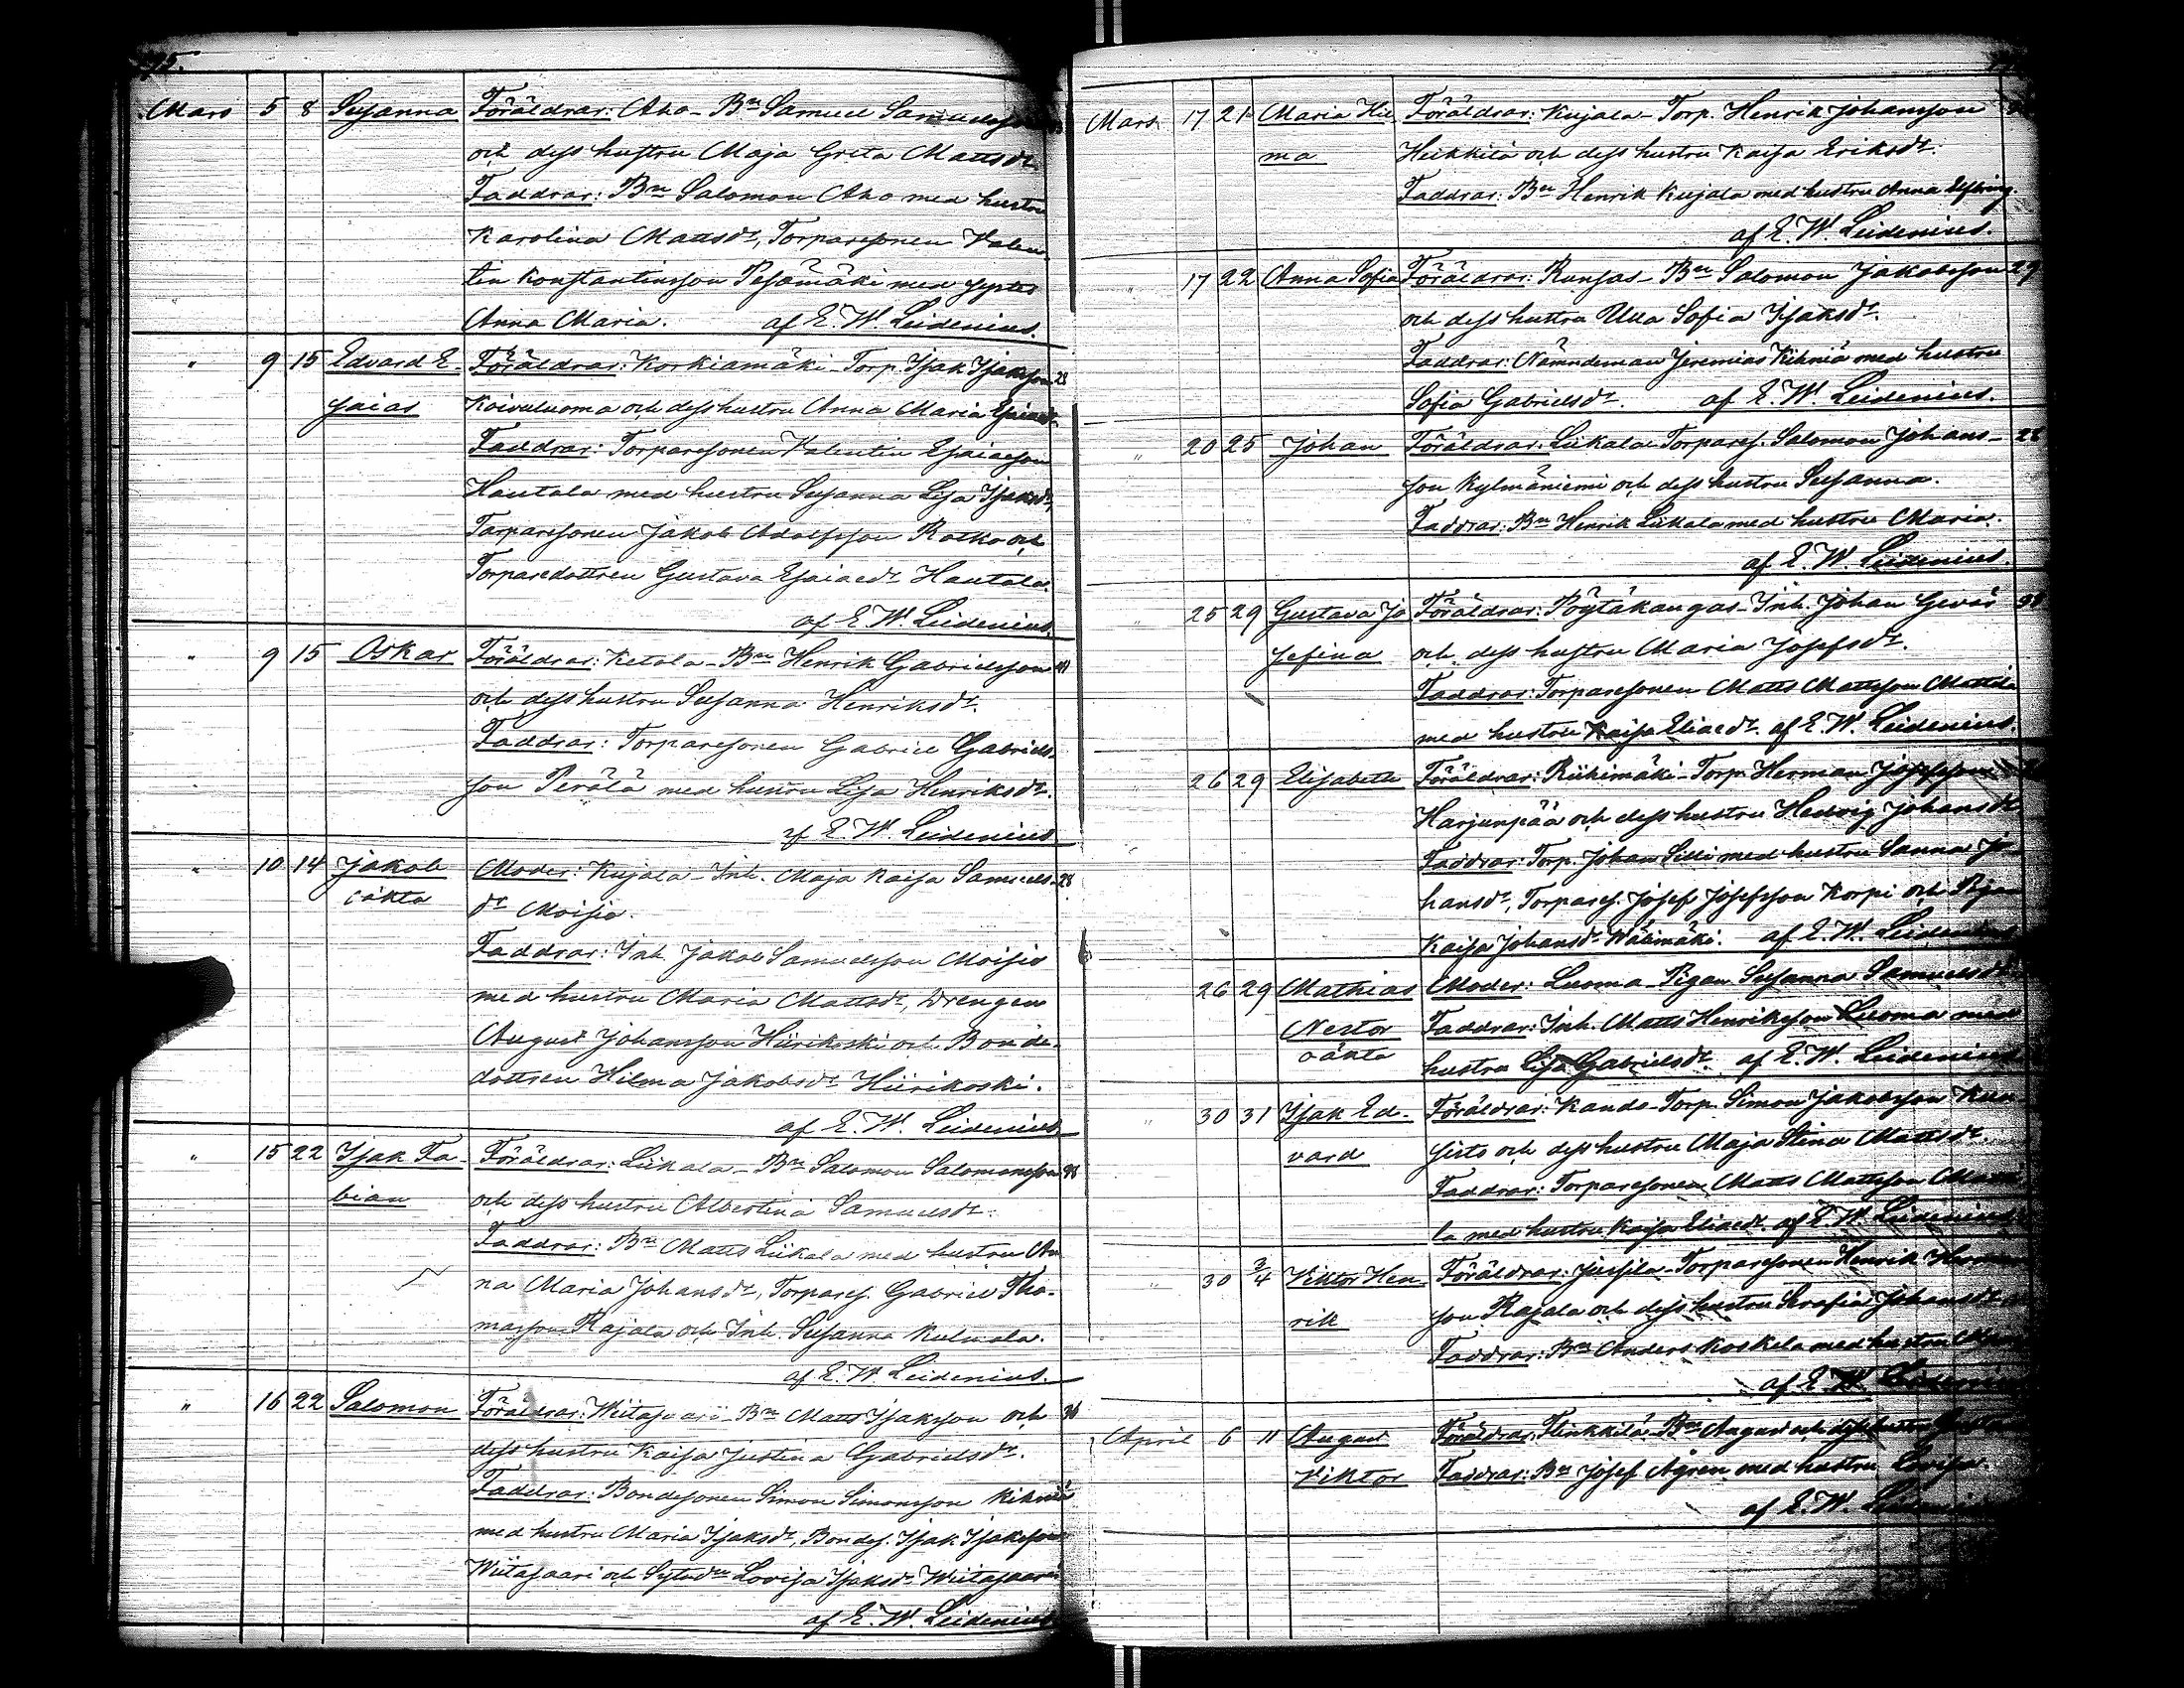 Mars 5 8 Susanna Föräldrar: Aho - Bn Samuel Samuelsson
och dess hustru Maja Greta Mattsdr.
Faddrar: Bn Salomon Aho med hustru
Karolina Mattsdr, Torparesonen Valen-
tin Konstantinsson Pesämäki med syster
Anna Maria. af E. W. Leidenius.
" 9 15 Edvard E- Föräldrar: Korkiamäki - Torp. Isak Isaksson 28
saias Koivuluoma och dess hustru Anna Maria Esaiaedr.
Faddrar: Torparesonen Valentin Esaiasson
Hautala med hustru Susanna Lisa Isaksdr,
Torparesonen Jakob Adolfsson Ratko och
Torparedottren Gustava Esaiaedr Hautala.
af E. W. Leidenius.
" 9 15 Oskar Föräldrar: Ketola - Bn Henrik Gabrielsson
och dess hustru Susanna Henriksdr.
Faddrar: Torparesonen Gabriel Gabriels-
son Perälä med hustru Lisa Henriksdr.
af E. W. Leidenius
" 10 14 Jakob Moder: Kujala - Inh. Maja Kaisa Samuels- 28
oäkta dr Moisio.
Faddrar: Inh. Jakob Samuelsson Moisio
med hustru Maria Mattsdr, Drengen
August Johansson Hiirikoski och Bonde-
dottren Hilma Jakobsdr Hiirikoski.
af E. W. Leidenius
" 15 22 Isak Fa- Föräldrar: Liikala - Bn Salomon Salomonsson
bian och dess hustru Albertina Samuelsdr.
Faddrar: Bn Matts Liikala med hustru An
na Maria Johansdr, Torpares. Gabriel Tho-
masson Rajala och Inh. Susanna Kulmala.
af E. W. Leidenius.
" 16 22 Salomon Föräldrar: Wiitasaari - Bn Matts Isaksson och 36
dess hustru Kaisa Justina Gabrielsdr.
Faddrar: Bondesonen Simon Simonsson Kihniä
med hustru Maria Isaksdr, Bondes. Isak Isaksson
Wiitasaari och Lovisa Isaksdr Wiitasaari
af E. W. Leidenius
Mars 17 21 Maria Hil- Föräldrar: Kujala - Torp. Henrik Johansson
ma Heikkilä och dess hustru Kaisa Eriksdr.
Faddrar: Bn Henrik Kujala med hustru Anna
af E. W. Leidenius.
" 17 22 Anna Sofia Föräldrar: Runsas - Bn Salomon Jakobsson 29
och dess hustru Ulla Sofia Isaksdr.
Faddrar: Nämndeman Jeremias Kihniä med hustru
Sofia Gabrielsdr. af E. W. Leidenius.
" 20 25 Johan Föräldrar: Liikala Torpares. Salomon Johans- 22
son Kylmäniemi och dess hustru Susanna.
Faddrar: Bn Henrik Liikala med hustru Maria.
af E. W. Leidenius.
" 25 29 Gustava Jo Föräldrar: Pöytäkangas - Inh. Johan Gevär 38
sefina och dess hustru Maria Josefsdr.
Faddrar: Torparesonen Matts Mattsson Mattila
med hustru Kaisa Eliaedr. af E. W. Leidenius.
26 29 Elisabeth Föräldrar: Riihimäki - Torp. Herman Josefsson
Harjunpää och dess hustru Hedvig Johansdr.
Faddrar: Torp. Johan Silli med hustru Sanna Jo
hansdr, Torpares. Josef Josefsson Korpi och Pigan
Kaisa Johansdr Wälimäki. af E. W. Leidenius
26 29 Mathias Moder: Luoma - Pigan Susanna Samuelsdr
Nestor Faddrar: Inh. Matts Henriksson Luoma med
oäkta hustru Lisa Gabrielsdr. af E. W. Leidenius
" 30 31 Isak Ed- Föräldrar: Kando - Torp. Simon Jakobsson Kuu
vard sisto och dess hustru Maja Stina Mattsdr.
Faddrar: Torparesonen Matts Mattsson Matti
la med hustru Kaisa Eliaedr. af E. W. Leidenius
" 30 3/4 Viktor Hen- Föräldrar: Jussila - Torparesonen Henrik Herman
rik son Rajala och dess hustru Serafia Johansdr
Faddrar: Bn Anders Koskela med hustru
af E. W. Leidenius
April 6 11 August Föräldrar: Flinkkilä - Bn August och dess hustru
Viktor Faddrar: Bn Josef Ågren med hustru Lovisa.
af E. W. Leidenius